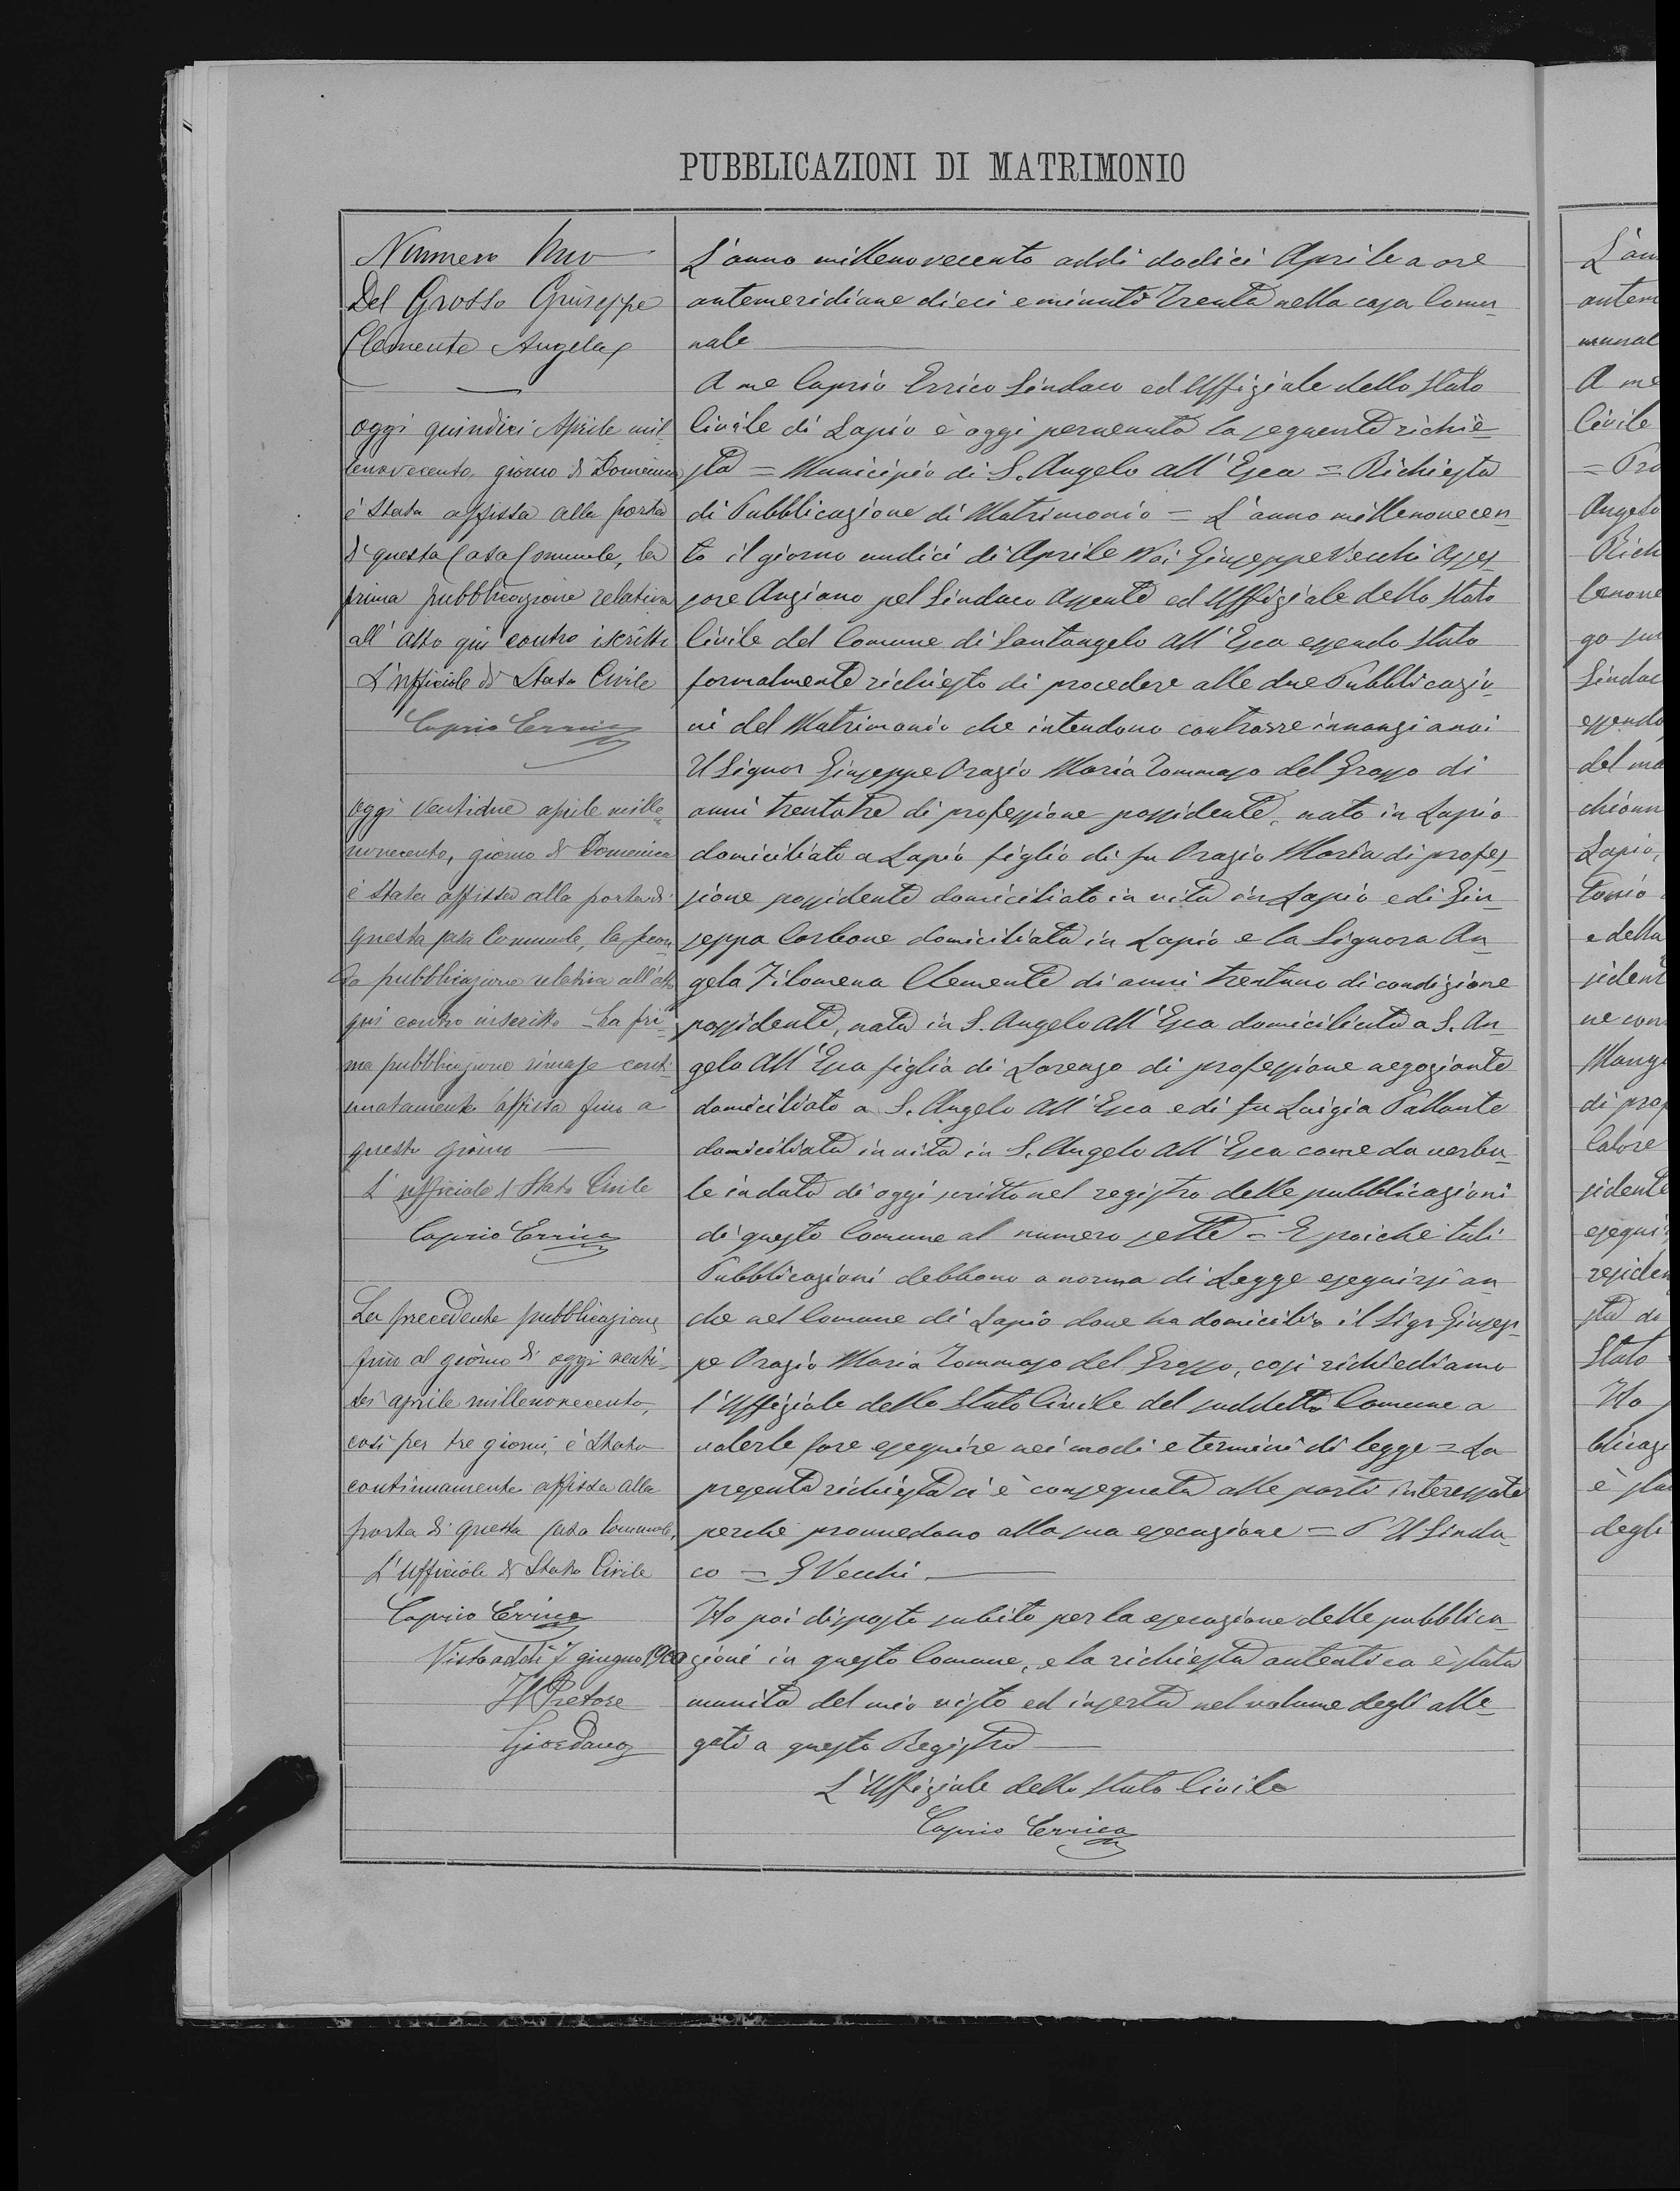 PUBBLICAZIONI DI MATRIMONIO
Numero Uno
Del Grosso Giuseppe
Clemente Angela
oggi quindici Aprile mil-
lenovecento, giorno di Domenica
è stata affissa alla porta
di questa Casa Comunale, la
prima pubblicazione relativa
all'atto qui contro iscritto
L'ufficiale di Stato Civile
Caprio Errico
oggi ventidue aprile mille-
novecento, giorno di Domenica
è stata affissa alla porta di
questa casa Comunale, la secon
da pubblicazione relativa all'atto
qui contro inscritto - La pri-
ma pubblicazione rimase conti-
nuatamente affissa fino a
questo giorno
L'ufficiale di Stato Civile
Caprio Errico
La precedente pubblicazione
fino al giorno di oggi venti-
sei aprile millenovecento,
così per tre giorni, è stata
continuamente affissa alla
porta di questa casa Comunale,
L'ufficiale di Stato Civile
Caprio Errico
Visto addì 7 giugno 1900
Il Pretore
Giordano
L'anno millenovecento addi dodici Aprile a ore
antemeridiane dieci e minuti trenta nella casa Comu-
nale
A me Caprio Errico Sindaco ed Uffiziale dello Stato
Civile di Lapio è oggi pervenuta la seguente richie-
sta = Municipio di S. Angelo all'Esca = Richiesta
di Pubblicazione di Matrimonio = L'anno millenovecen-
to il giorno undici di Aprile Noi Giuseppe Vecchi Asses
sore Anziano pel Sindaco assente ed Uffiziale dello Stato
Civile del Comune di Santangelo all'Esca essendo stato
formalmente richiesto di procedere alle due Pubblicazio-
ni del Matrimonio che intendono contrarre innanzi a noi
Il Signor Giuseppe Orazio Maria Tommaso del Grosso di
anni trentatre di professione possidente, nato in Lapio
domiciliato a Lapio figlio di fu Orazio Maria di profes
sione possidente domiciliato in vita in Lapio e di Giu-
seppa Carbone domiciliata in Lapio e la Signora An
gela Filomena Clemente di anni trentuno di condizione
possidente, nata in S. Angelo all'Esca domiciliata a S. An-
gelo all'Esca figlia di Lorenzo di professione negoziante
domiciliato a S. Angelo all'Esca e di fu Luigia Pallante
domiciliata in vita in S. Angelo all'Esca come da verba-
le in data di oggi scritto nel registro delle pubblicazioni
di questo Comune al numero sette = E poichè tali
Pubblicazioni debbono a norma di Legge eseguirsi an-
che nel Comune di Lapio dove ha domicilio il Sigr Giusep-
pe Orazio Maria Tommaso del Grosso, così richiediamo
l'Uffiziale dello Stato Civile del suddetto Comune a
volerle fare eseguire nei modi e termini di legge = La
presente richiesta si è consegnata alle parti interessate
perchè provvedano alla sua esecuzione = P Il Sinda-
co = G Vecchi
Ho poi disposto subito per la esecuzione delle pubblica-
zioni in questo Comune, e la richiesta autentica è stata
munita del mio visto ed inserta nel volume degli alle-
gati a questo Registro
L'Uffiziale dello Stato Civile
Caprio Errico